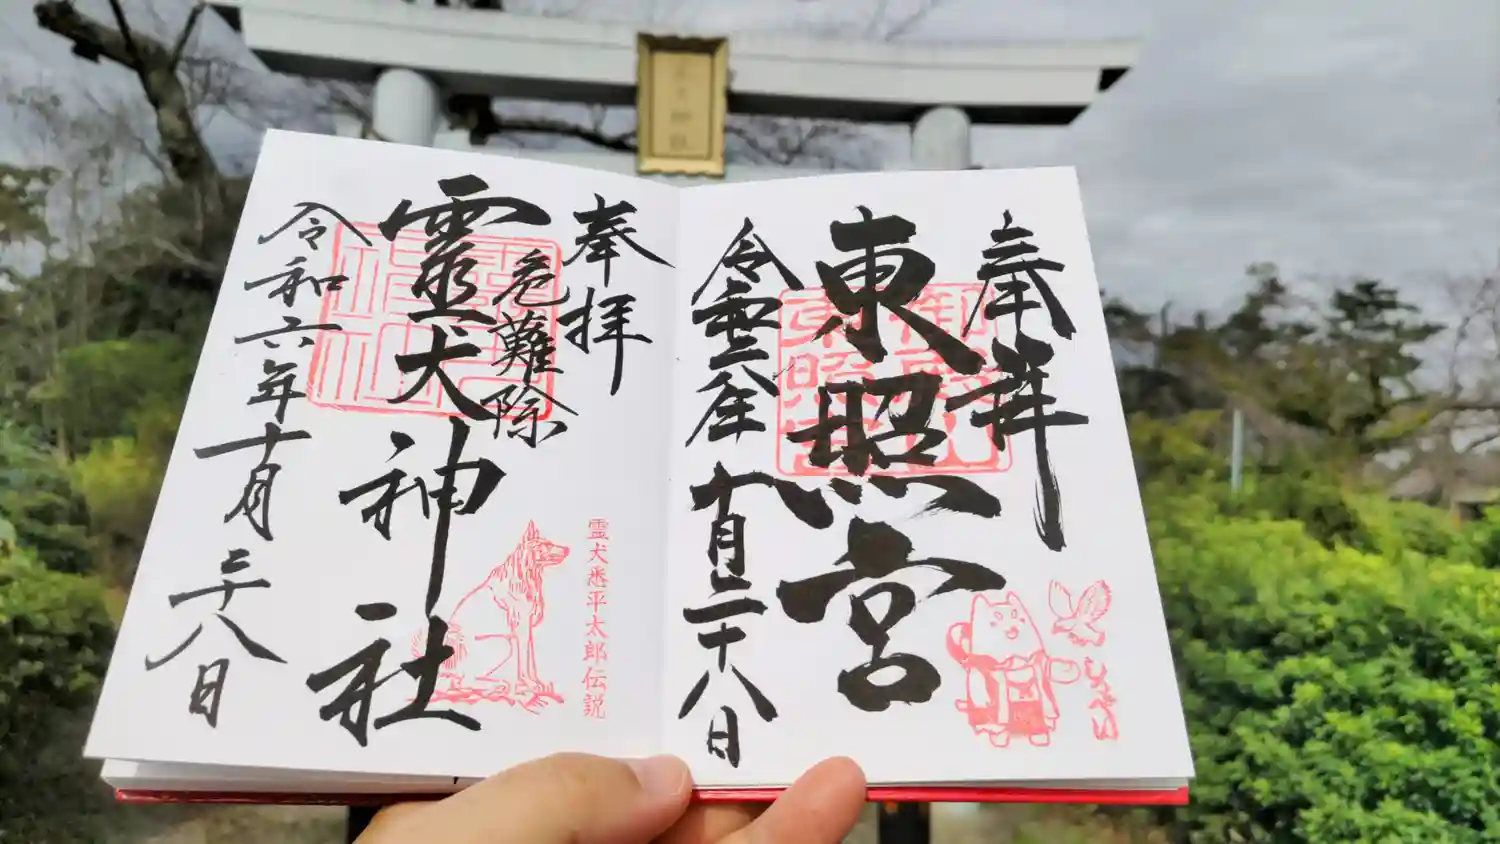 奉拝
東照宮
令和六年
十月二十八日
奉拝
危難除
靈犬神社
令和六年十月二十八日
霊犬悉平太郎伝説